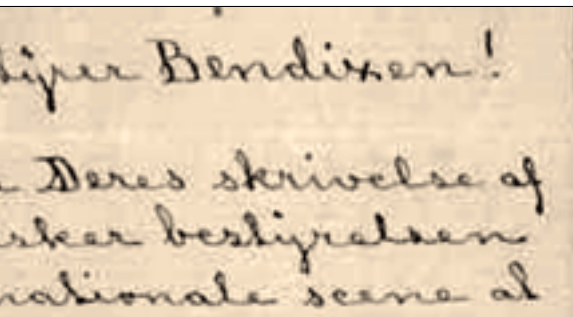 tyrer Bendixen!
Deres skrivelse af
sker bestyrelsen
nationale scene at